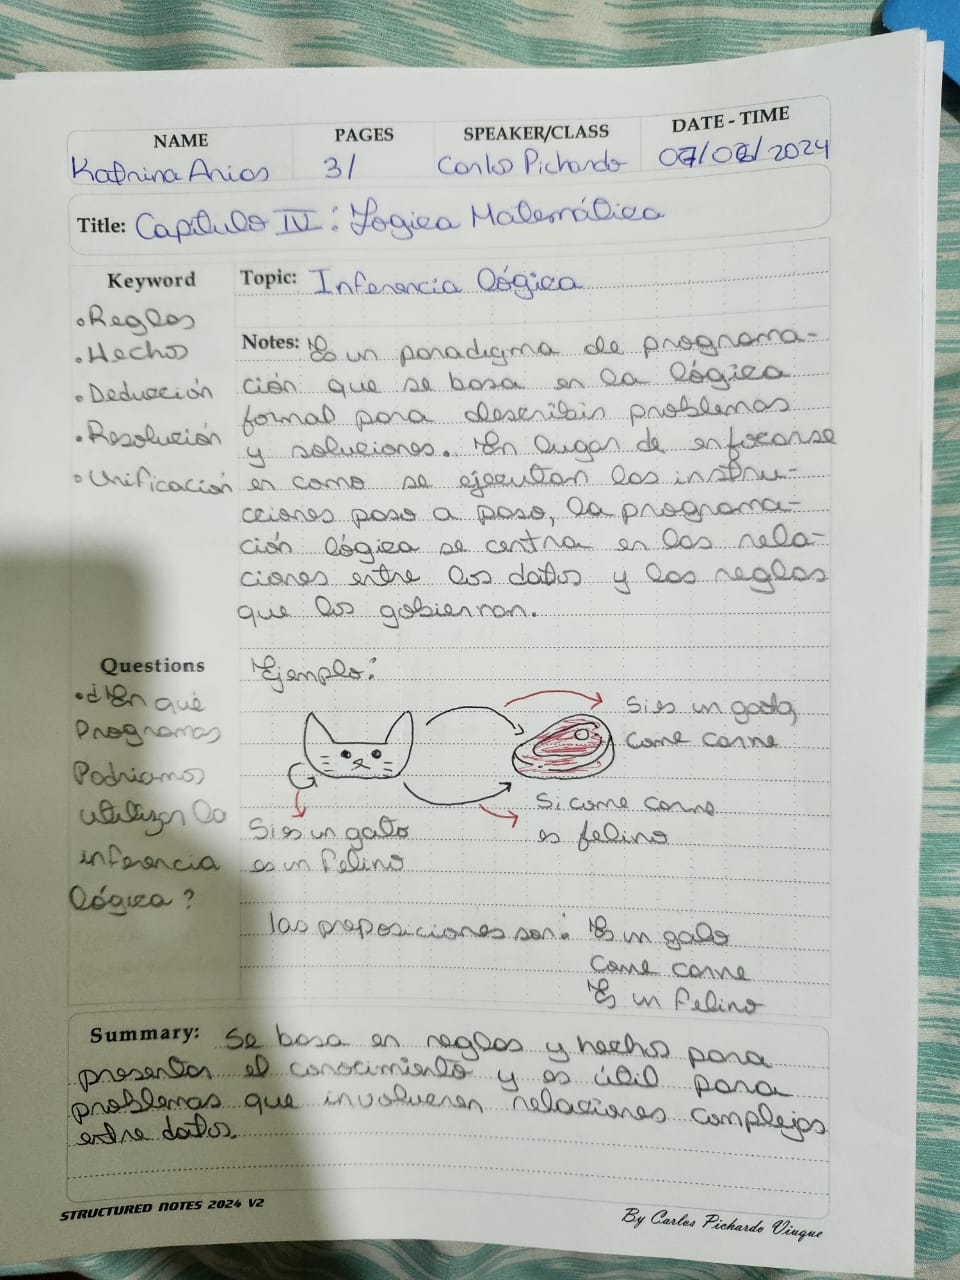 NAME PAGES SPEAKER/CLASS DATE - TIME
Katrina Arias 3/ Carlos Pichardo 07/08/2024
Title: Capítulo IV: Logica Matemática
Keyword
• Reglas
• Hechos
• Deducción
• Resolución
• Unificación
Topic: Inferencia lógica
Notes: Es un paradigma de programa-
ción que se basa en la lógica
formal para describir problemas
y soluciones. En lugar de enfocarse
en como se ejecutan las instru-
cciones paso a paso, la programa-
ción lógica se centra en las rela-
ciones entre los datos y las reglas
que los gobiernan.
Questions
• ¿En qué
Programas
Podriamos
utilizar la
inferencia
lógica?
Ejemplo:
Si es un gato,
come carne
Si come carne
es felino
Si es un gato
es un felino
las proposiciones son: Es un gato
Come carne
Es un felino
Summary: Se basa en reglas y hechos para
presentar el conocimiento y es útil para
problemas que involucren relaciones complejas
entre datos.
STRUCTURED NOTES 2024 V2
By Carlos Pichardo Viuque